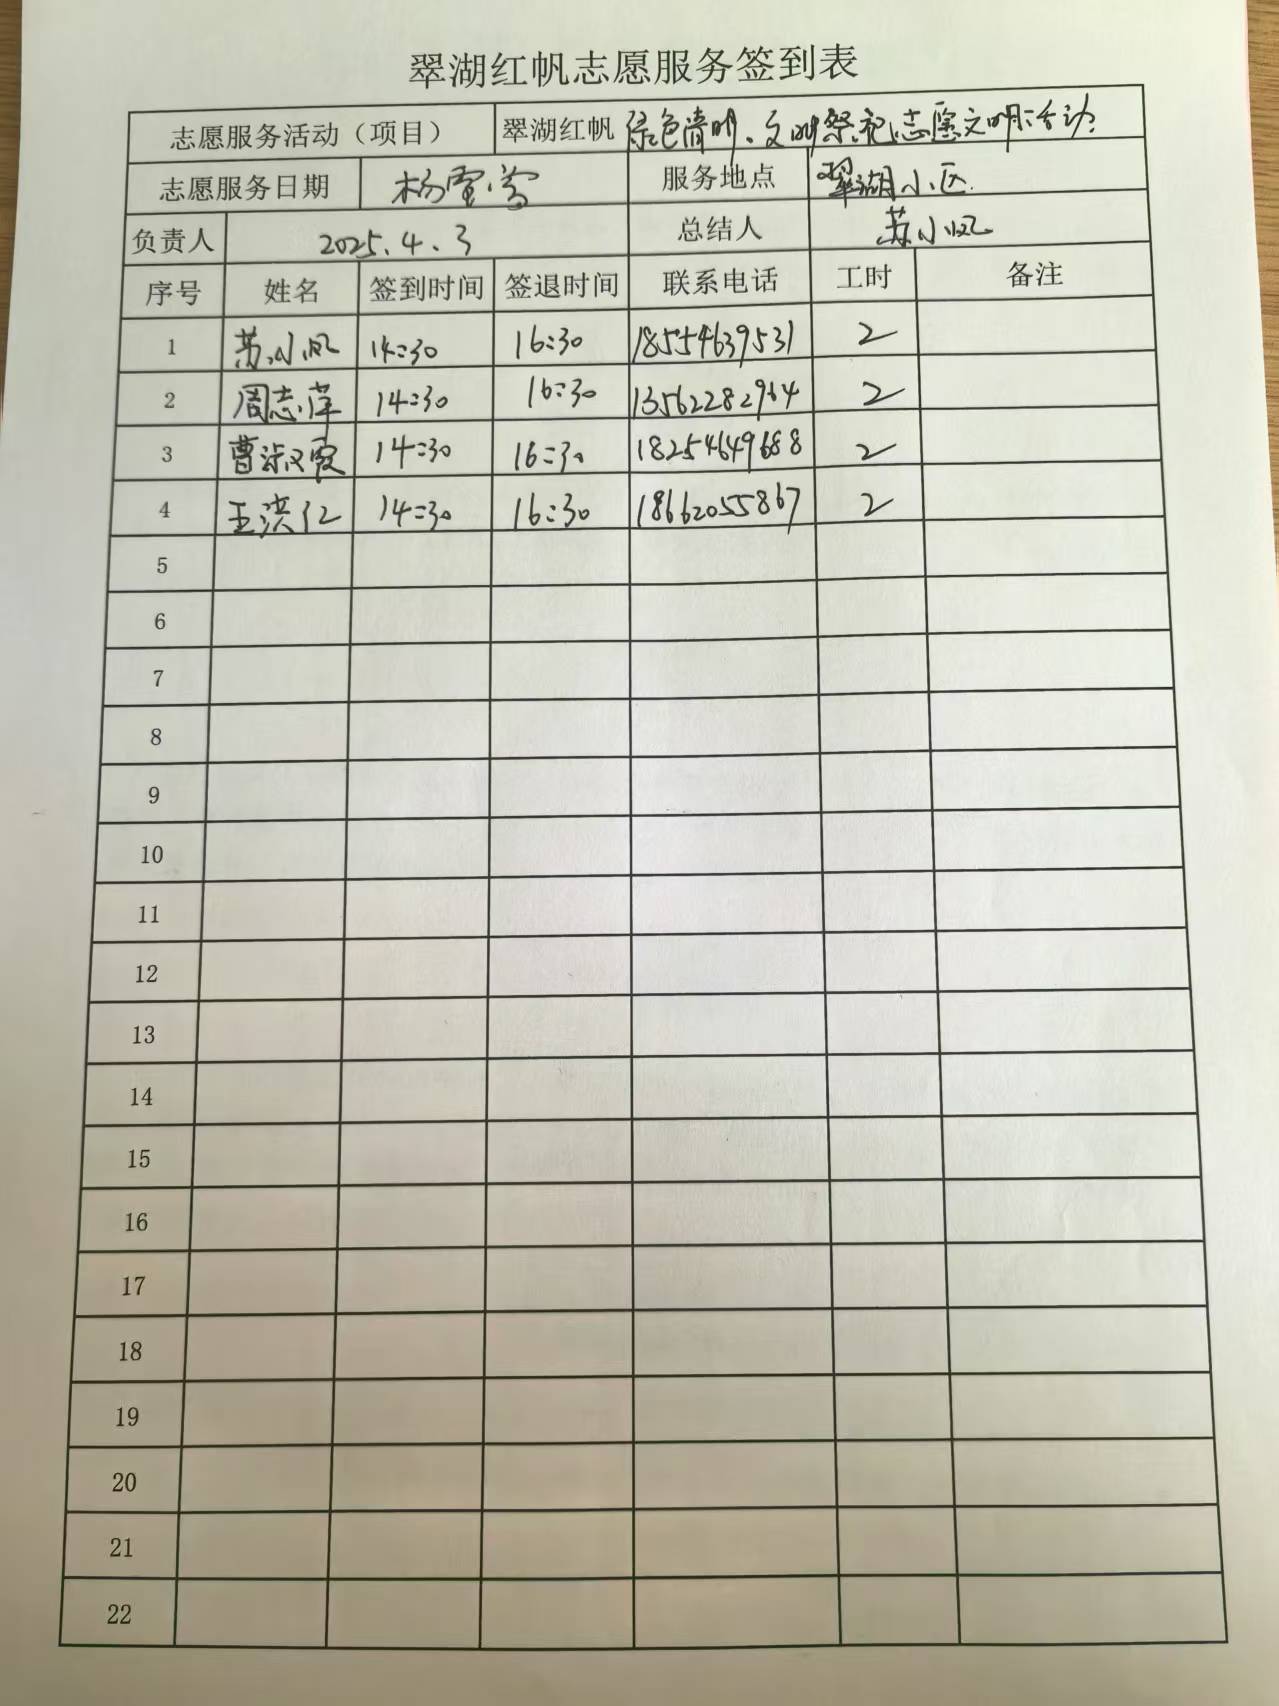 翠湖红帆志愿服务签到表
志愿服务活动（项目） 翠湖红帆 绿色清明、文明祭祀志愿文明活动
志愿服务日期 杨雪莹 服务地点 翠湖小区
负责人 2025.4.3 总结人 苏小凤
序号 姓名 签到时间 签退时间 联系电话 工时 备注
1 苏小凤 14:30 16:30 18554639531 2
2 周志萍 14:30 16:30 13562282964 2
3 曹淑霞 14:30 16:30 18254649688 2
4 王洪仁 14:30 16:30 18662055867 2
5
6
7
8
9
10
11
12
13
14
15
16
17
18
19
20
21
22